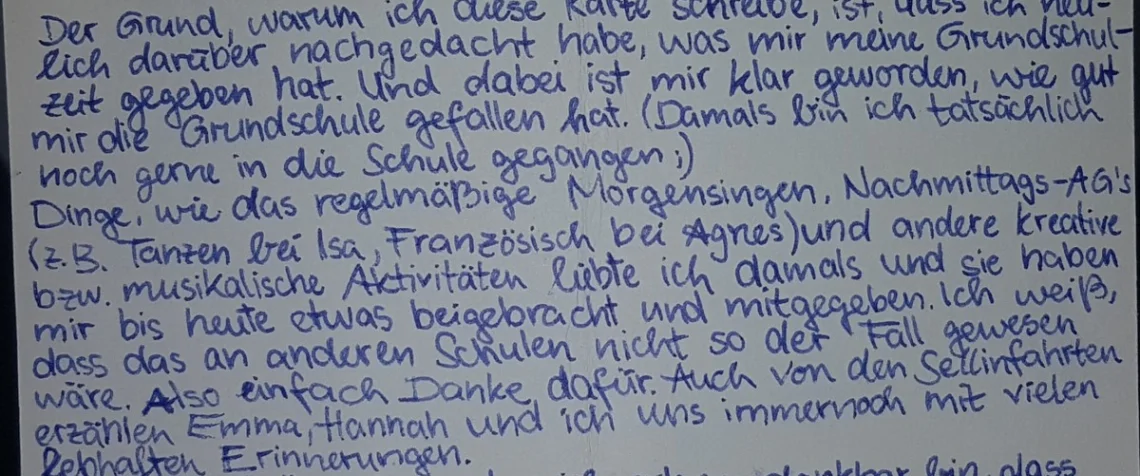 Der Grund, warum ich diese Karte schreibe, ist, dass ich neu-
lich darüber nachgedacht habe, was mir meine Grundschul-
zeit gegeben hat. Und dabei ist mir klar geworden, wie gut
mir die Grundschule gefallen hat. (Damals bin ich tatsächlich
noch gerne in die Schule gegangen ;)
Dinge, wie das regelmäßige Morgensingen, Nachmittags-AG's
(z.B. Tanzen bei Isa, Französisch bei Agnes) und andere kreative
bzw. musikalische Aktivitäten liebte ich damals und sie haben
mir bis heute etwas beigebracht und mitgegeben. Ich weiß,
dass das an anderen Schulen nicht so der Fall gewesen
wäre. Also einfach Danke dafür. Auch von den Sellinfahrten
erzählen Emma, Hannah und ich uns immernoch mit vielen
lebhaften Erinnerungen.
dankbar bin, dass